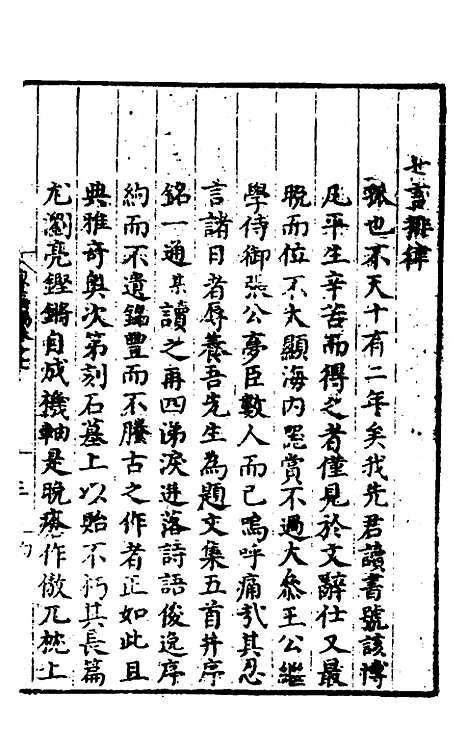 七言排律
孤也不天十有二年矣我先君讀書號該博
凡平生辛苦而得之者僅見於文辭仕又最
晚而位不大顯海内鑒賞不過大參王公繼
學侍御張公夢臣數人而已嗚呼痛哉其忍
言諸日者辱養吾先生為題文集五首并序
銘一通某讀之再四涕淚迸落詩語俊逸序
約而不遺銘豐而不騰古之作者正如此且
典雅奇奧次第刻石墓上以貽不朽其長篇
尤瀏亮鏗鏘自成機軸是晚痊作傲兀枕上